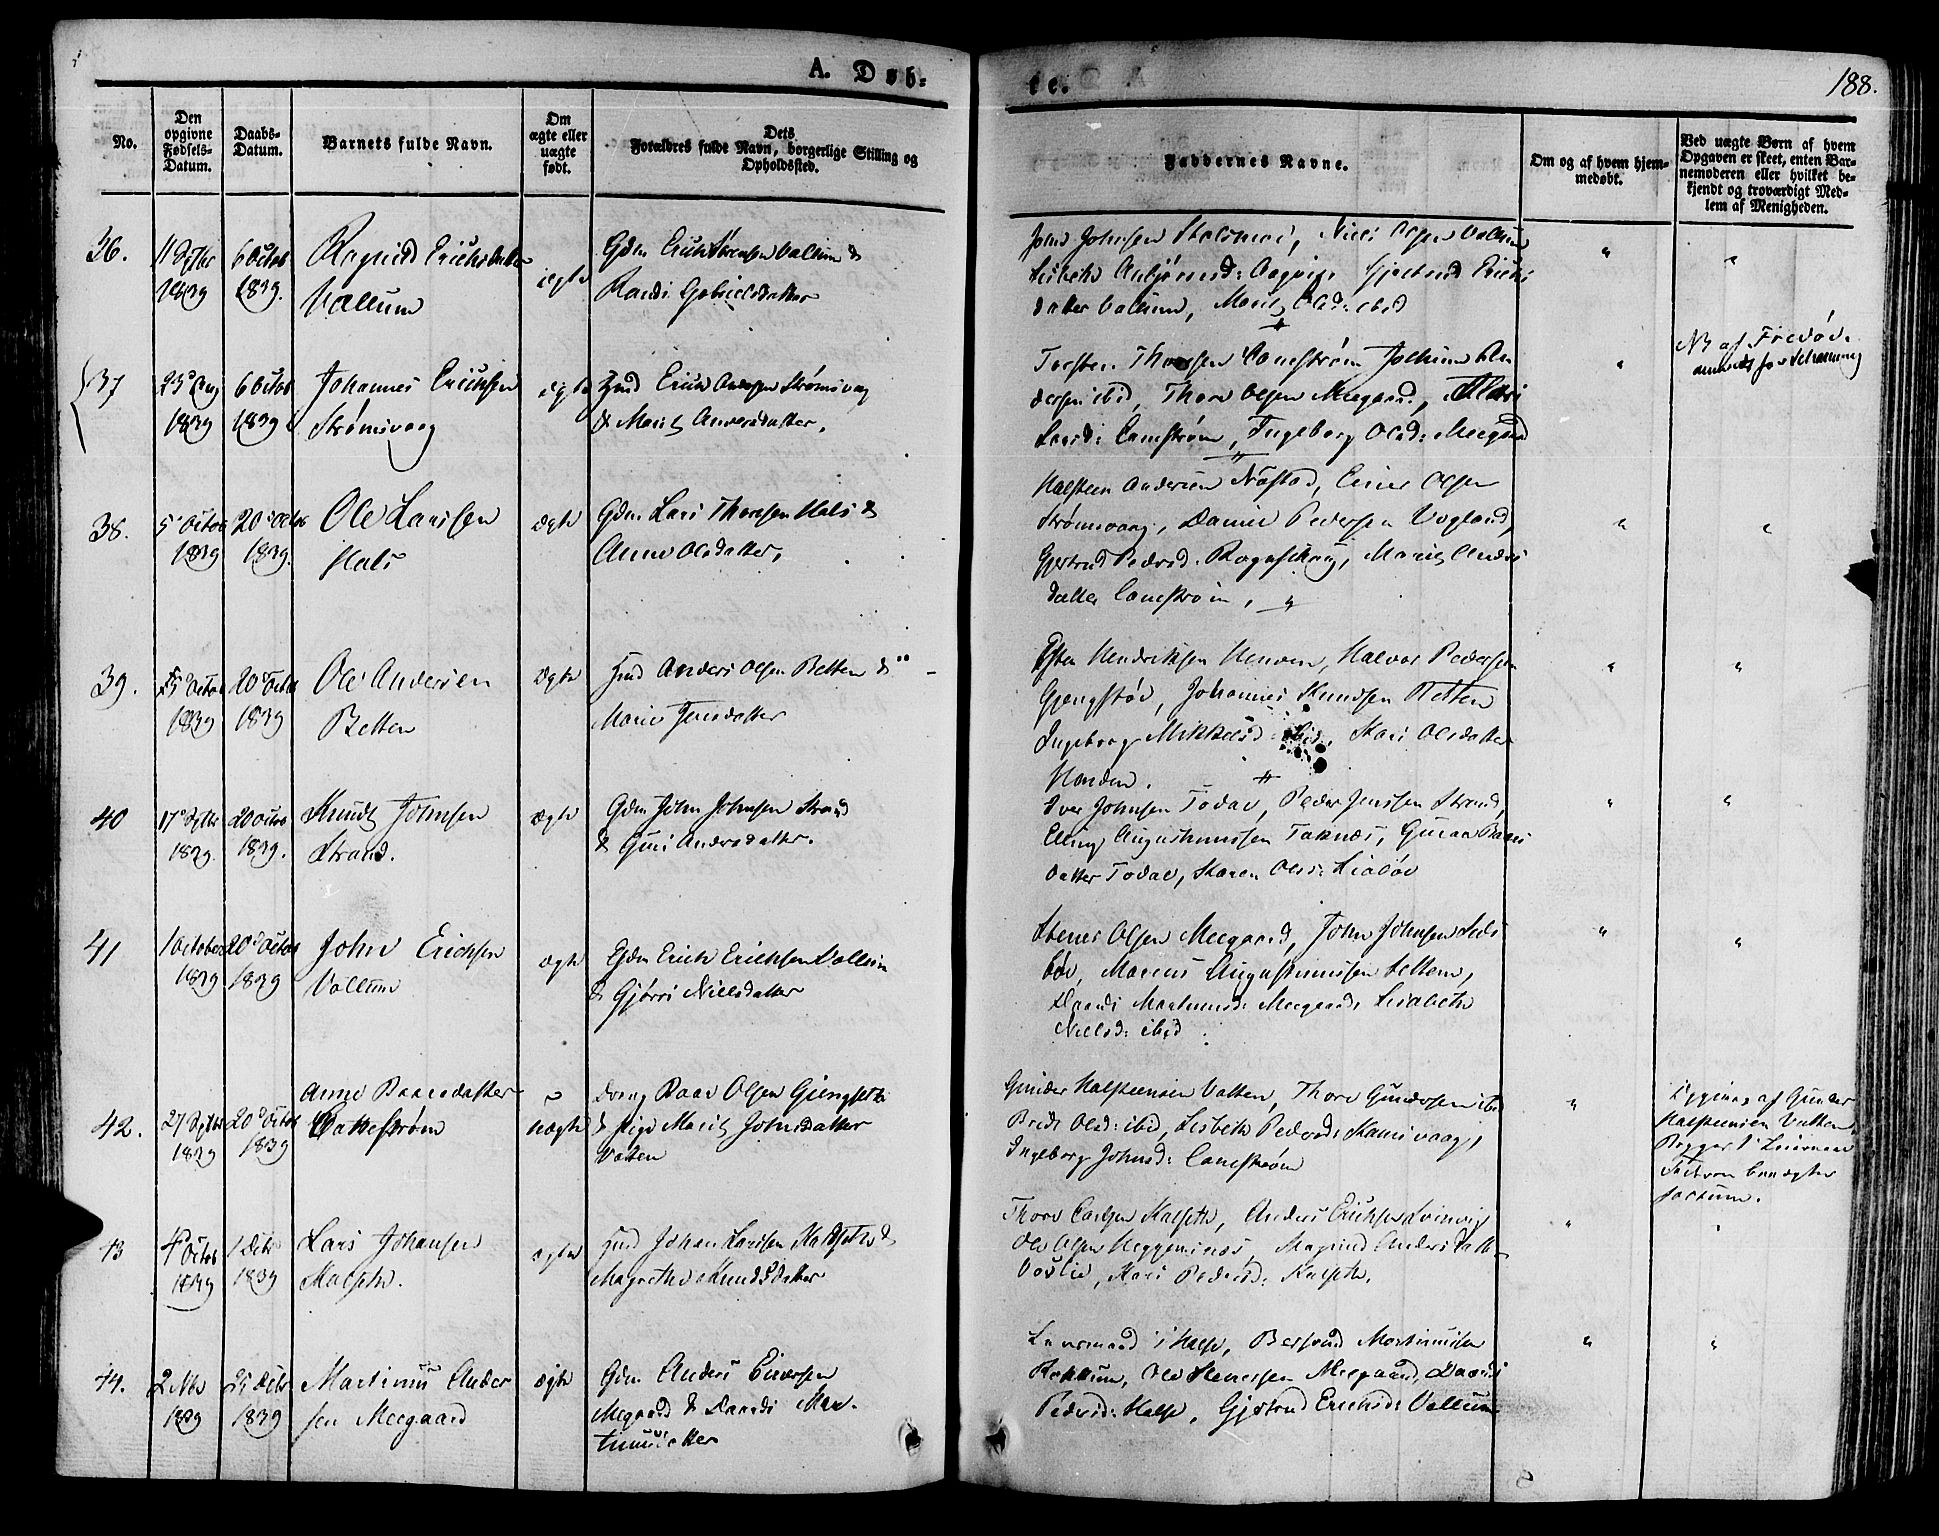 A. Døb-
te.
188.
No.
Den opgivne Fødsels-Datum.
Daabs-Datum.
Barnets fulde Navn.
Om ægte eller uægte født.
Dets Forældres fulde Navn, borgerlige Stilling og Opholdssted.
Faddernes Navne.
Om og af hvem hjem-
medøbt.
Ved uægte Børn af hvem
Opgaven er skeet, enten Bar-
nemoderen eller hvilket be-
kjendt og troværdigt Med-
lem af Menigheden.
36.
11 Septbr 1839
6 Octob 1839.
Ragnild Erichsdatter
Vallum
ægte
Gdm Erich Vallum &
Randi Gabrielsdatter
John Johnsen Niels Olsen Vallum
Lisbeth Gjertrud Erichs
datter Vallum, Marit Olsd: ibid
37
23 Aug 1839
6 Octob 1839
Johannes Erichsen
Strømsvaag
ægte
Huusmd Erich Andersen Strømsvaag
& Marit Andersdatter.
Torsten Thoresen Canestrøm Jochum An
dersen ibid, Thore Olsen Meegaard, Mari
Larsd: Canestrøm, Ingeborg Olsd: Meegaard
NB af
38.
5 Octob 1839
20 Octob 1839.
Ole Larssen
Hals
ægte
Gdm Lars Thoresen Hals &
Anne Olsdatter.
Halsteen Andersen Nastad, Einer Olsen
Strømsvaag, Daniel Pedersen Vogland
Gjertrud Pedersd: Marit Anders
datter Canestrøm,
39.
Octob 1839
20 Octob 1839
Ole Andersen
Betten
ægte
Huusmd Anders Olsen Betten &
Marie Jensdatter
Esten Hendriksen Henden, Halvor Pedersen
Gjengstøe, Johannes Knudsen Betten
Ingeborg Mikkelsd ibid, Kari Olsdatter
Henden.
40
17 Septbr 1839.
20 Octob 1839.
Knudt Johnsen
Strand.
ægte
Gdm John Johnsen Strand
& Guri Andersdatter.
Iver Johnsen Todal, Peder Jenssen Strand,
Augustinussen Taknæs,
datter Todal, Karen Olsd: Liabøe
41
1 October 1839
20 Octob 1839
John Erichsen
Vallum
ægte
Gdm Erich Erichsen Vallum
& Gjørri Nielsdatter
Stener Olsen Meegaard, John Johnsen
bøe, Marcus Augustinussen Settem,
Daardi Martinusd: Meegaard, Lisabeth
Nielsd: ibid
42.
27 Septbr 1839
20 Octob 1839
Anne Baardsdatter
uægte
Dreng Baar Olsen Gjengstøe
& Pige Marit Johnsdatter
Vatten
Gunder Halsteensen Vatten, Thore Gundersen ibid
Olsd: ibid, Lisbeth Pedersd:
Ingeborg Johnsd: Canestrøm
af Gunder
Halsteensen Vatten
Faderen benægter
factum.
43
4 Octob 1839
1 Decbr 1839
Lars Johansen
Kalseth.
ægte
Huusmd Johan Larssen Kalseth &
Magrethe Knudsdatter
Thore Carlsen Kalseth, Anders Erichsen
Ole Olsen Heggemsnæs, Magnild Andersdatter
Voslie, Kari Pedersd: Kalseth.
44.
2 Nov 1839
25 Decbr 1839
Martinus Ander
sen Meegaard
ægte
Gdm Anders Einersen
Megaard & Daardi Mar-
tinusdatter
Lensmand i Halse, Bersvend Martinussen
Rokkum, Ole Stenersen Meegaard, Daardi
Pedersd: Halse, Gjertrud Erichsd: Vallum